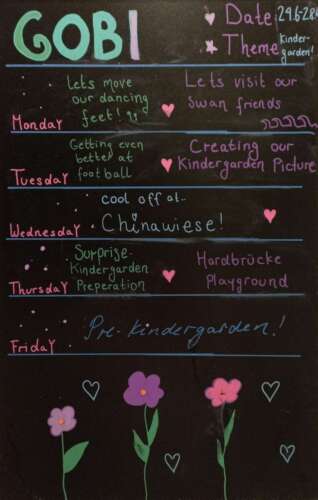 GOBI
Date 29.6-2.8
Theme Kinder-
garden!
Lets move
our dancing
feet!
Lets visit our
swan friends
Monday
Getting even
better at
football
Creating our
Kindergarden Picture
Tuesday
cool off at..
Chinawiese!
Wednesday
Surprise-
Kindergarden
Preperation
Hardbrücke
Playground
Thursday
Pre-kindergarden!
Friday